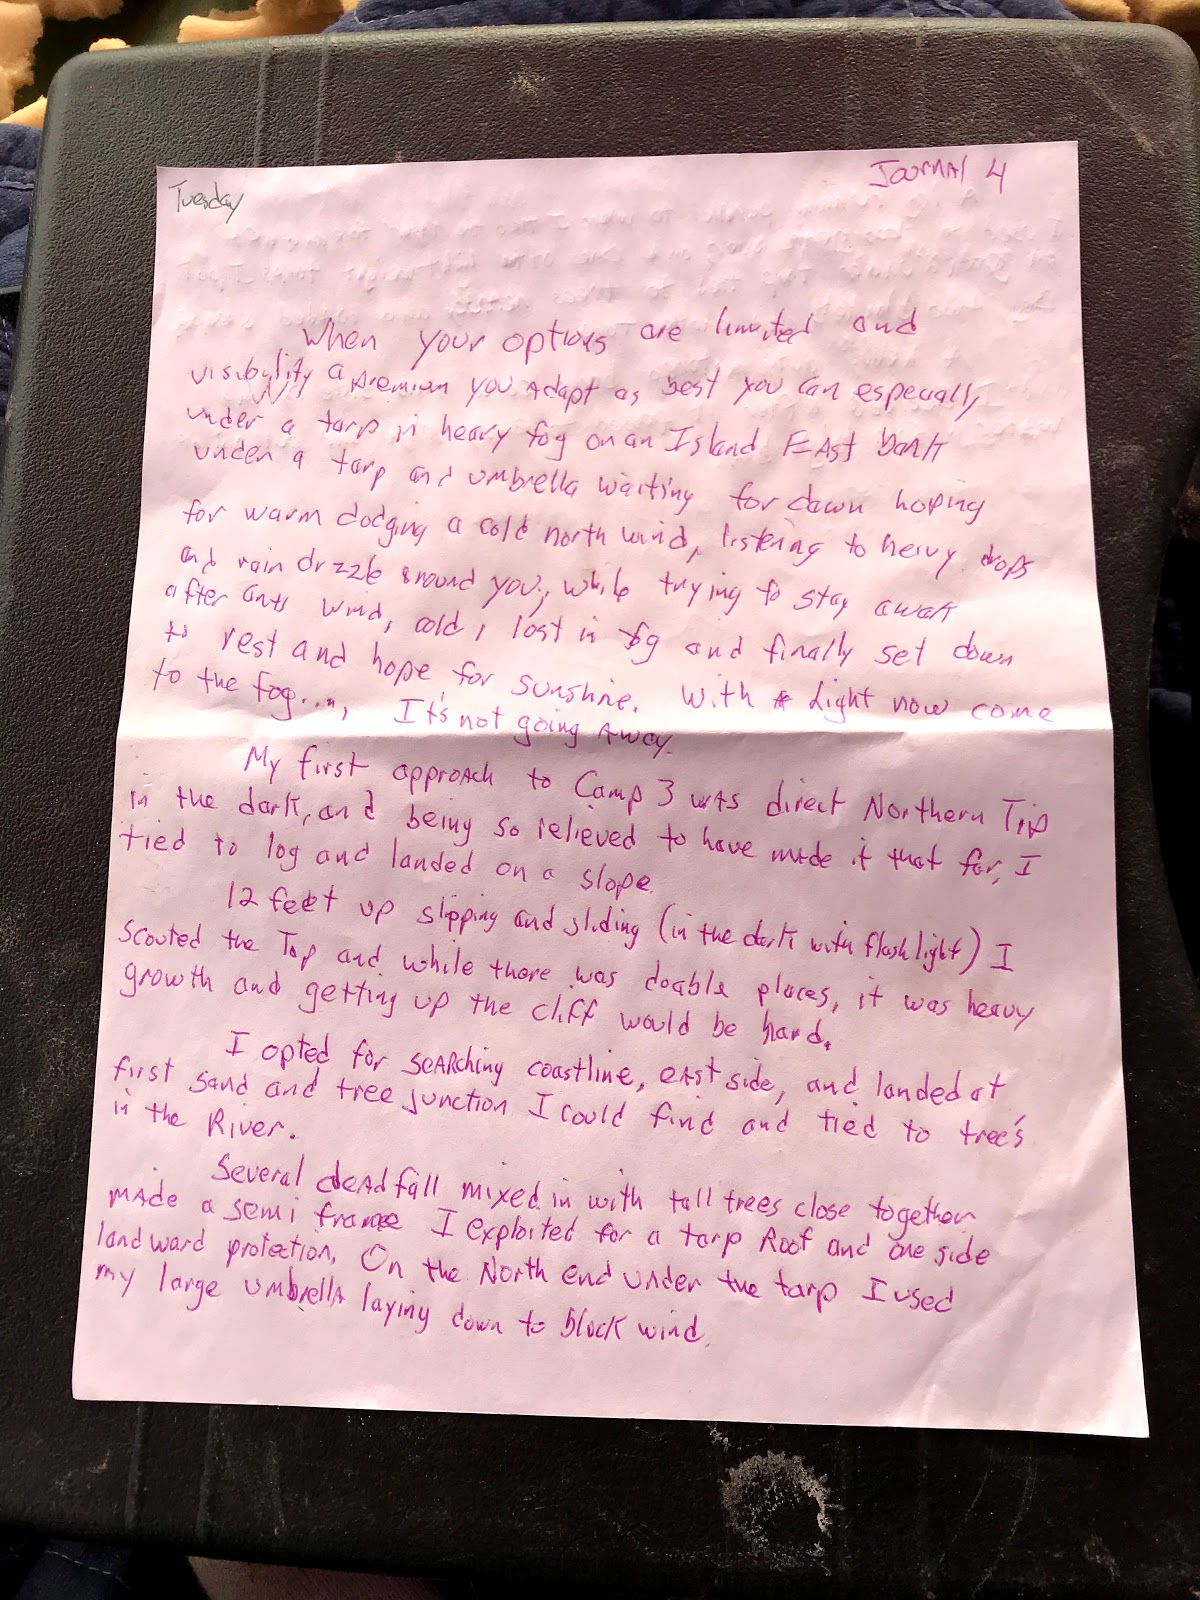 Tuesday
Journal 4
When your options are limited and
visibylity a premium you Adapt as best you can especially
under a tarp in heavy fog on an Island EAst bank
under a tarp and umbrella waiting for dawn hoping
for warm dodging a cold north wind, listening to heavy drops
and rain drzzle around you, while trying to stay awak
after ants wind, cold, lost in fog and finally set down
to rest and hope for sunshine. With Light now come
to the fog...., It's not going Away.
My first approach to Camp 3 was direct Northern Tip
in the dark, and being so relieved to have made it that far, I
tied to log and landed on a slope.
12 feet up slipping and sliding (in the dark with flash light) I
scouted the Top and while there was doable places, it was heavy
growth and getting up the cliff would be hard.
I opted for searching coastline, east side, and landed at
first sand and tree junction I could find and tied to tree's
in the River.
Several deadfall mixed in with tall trees close together
made a semi frame I exploited for a tarp Roof and one side
landward protection. On the North end under the tarp I used
my large umbrella laying down to block wind.